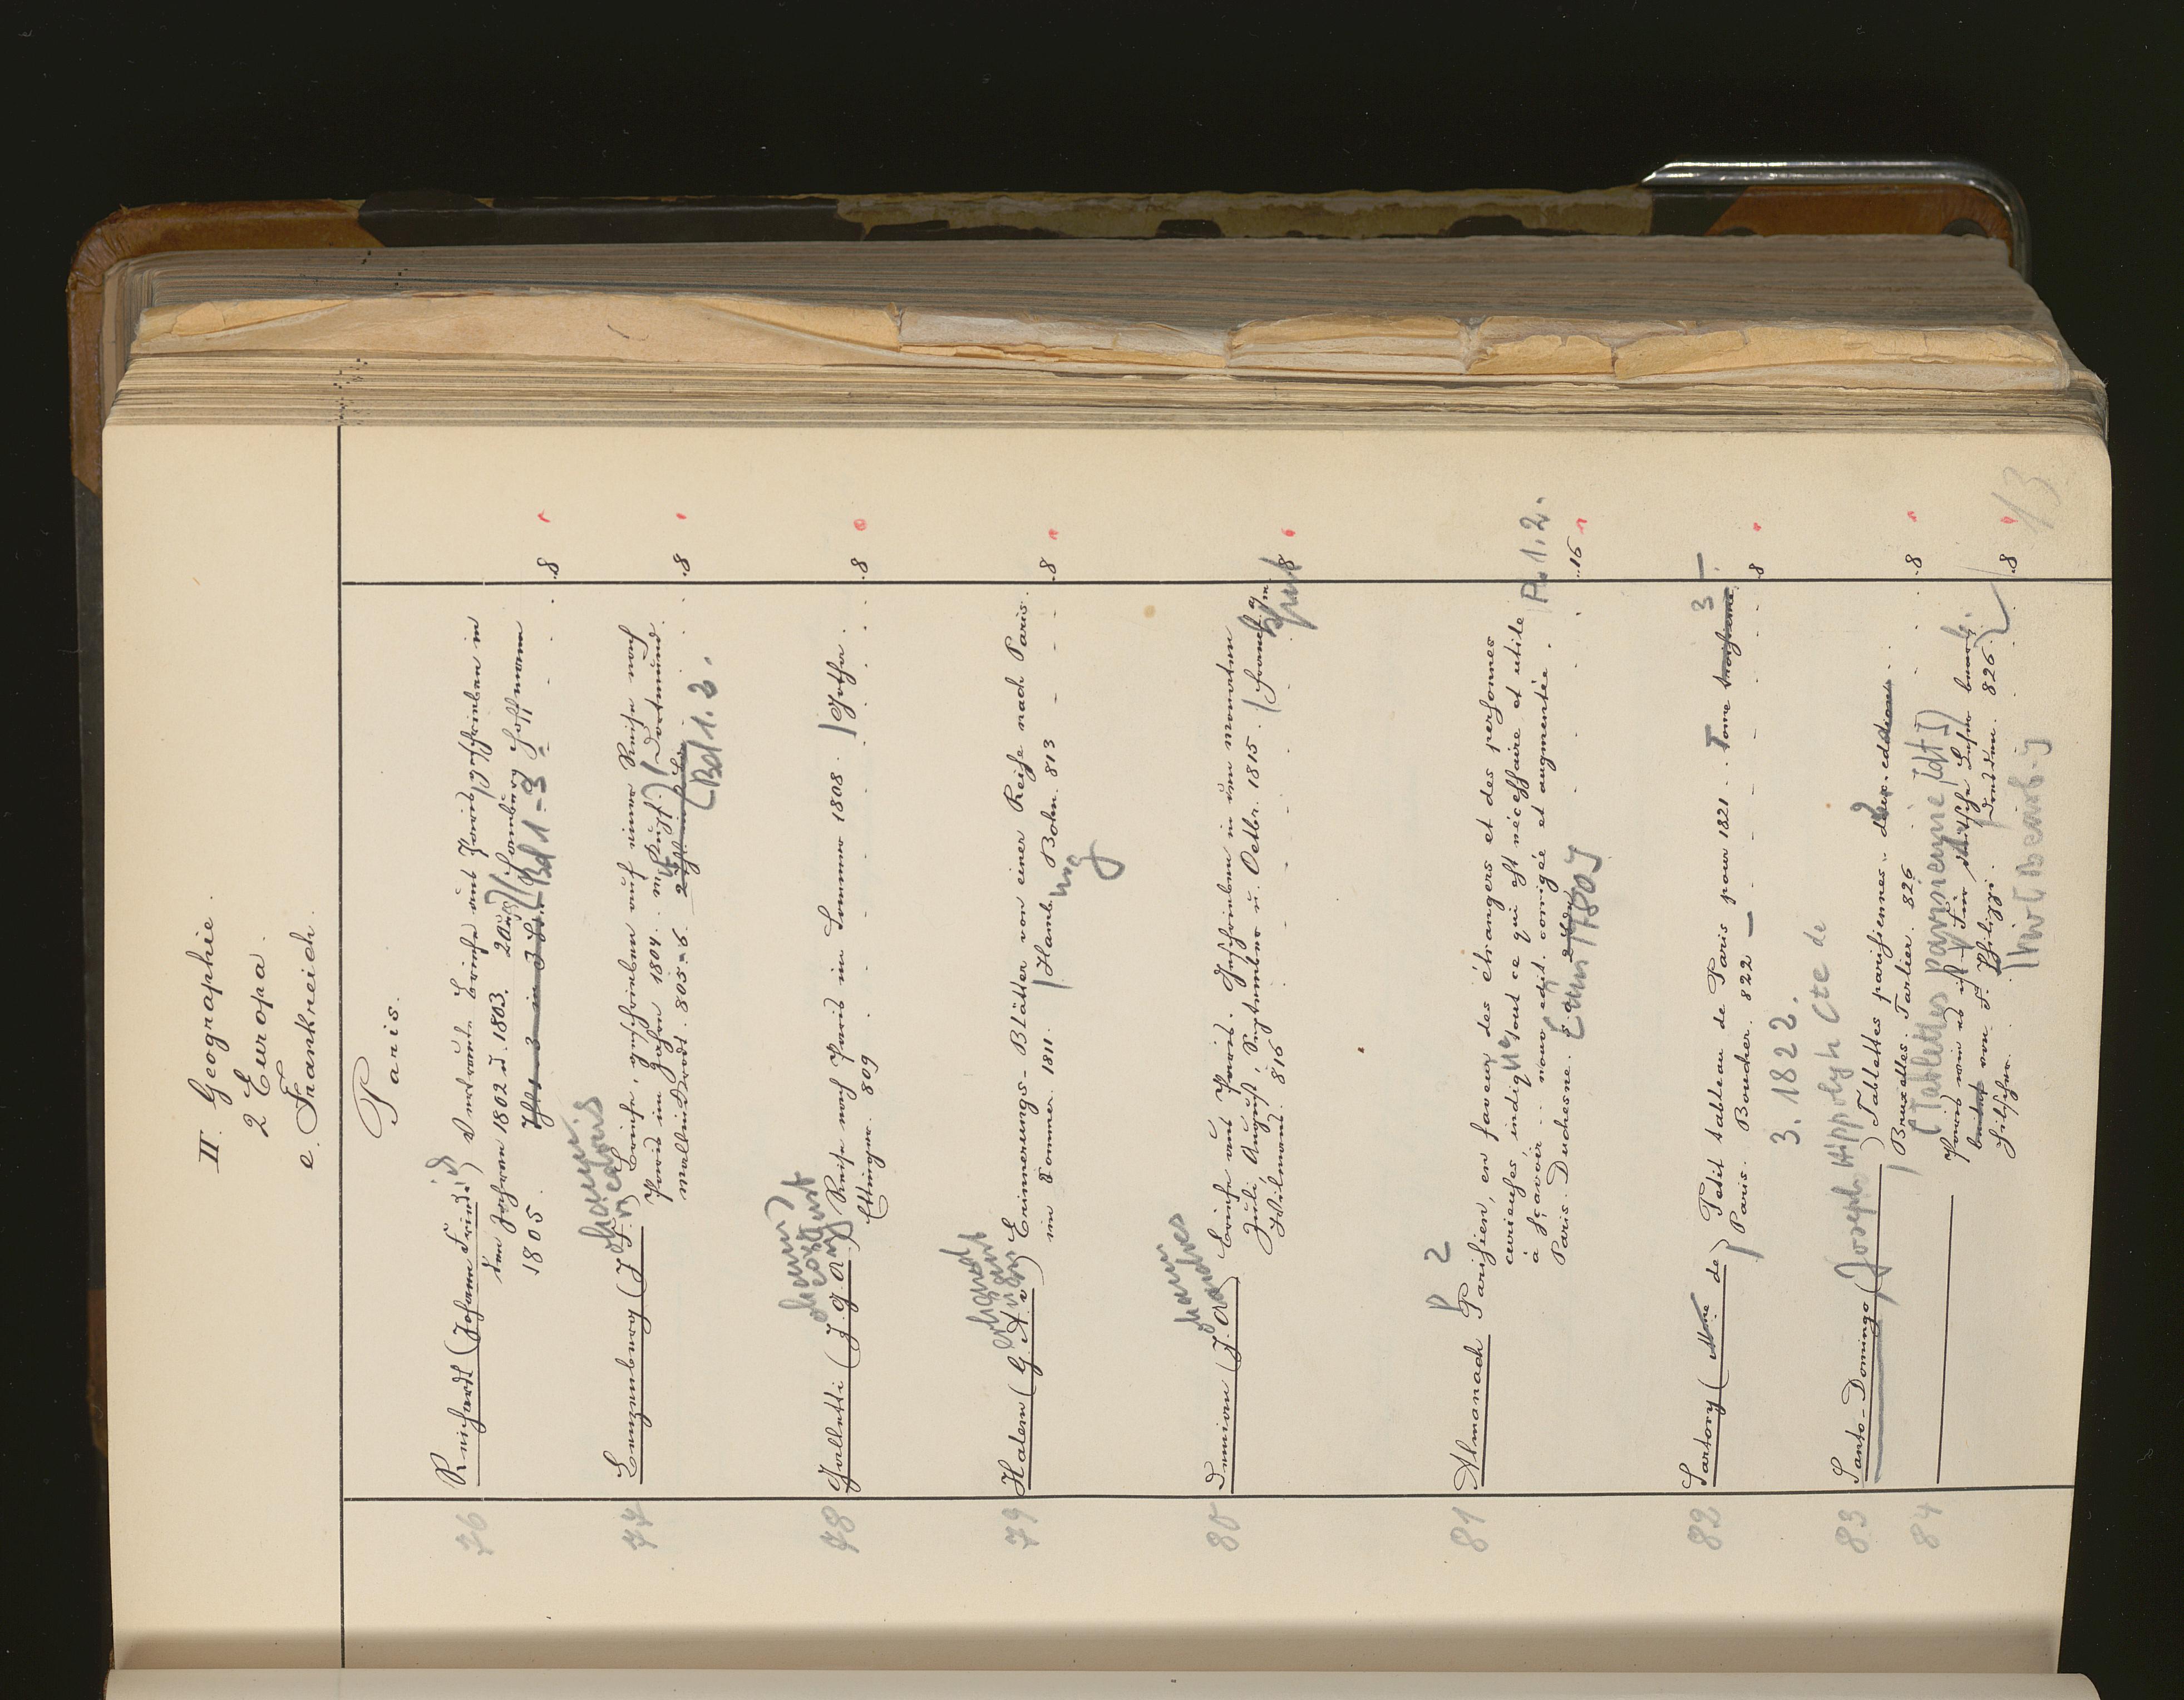 II. Geographie.
2 Europa.
e. Frankreich.
Paris.
76 Reichardt (Johann Friedrich) Vertraute Briefe aus Paris, geschrieben in
den Jahren 1802 u. 1803. 2 Aufl. Hamburg Hoffmann
1805. Thle 3 in 3 Bdn. (Bd 1-3 . . . 8
77 Benzenberg (Johann F.) Briefe, geschrieben auf einer Reise nach
Paris im Jahre 1804. m. Kupf. Dortmund.
Mallinckrodt. 805-6. (Bd 1.2. . 8
78 Galletti (Johann G. August) Reise nach Paris im Sommer 1808. Gotha.
Ettinger. 809 . . . 8
79 Halem (Gerhard Anton v.) Erinnerungs-Blätter von einer Reise nach Paris.
im Sommer 1811. Hamburg Bohn. 813 . . 8
80 Demian (Johann Andreas) Briefe aus Paris. Geschrieben in den Monaten
Juli, August, Septembr u. Octbr. 1815. Frankf. a/m.
Wilmans. 816 . . . 8
81 Almanach Parisien, en faveur des étrangers et des personnes
curieuses, indiquant tout ce qui est nécessaire et utile
à sçavoir . . nouv. edit. corrigée et augmentée. P. 1.2.
Paris. Duchesne. [um 1780] . . 16
82 Sartory (Mme de) Petit tableau de Paris pour 1821 . . Tome troisieme 3
Paris. Boucher. 822 — . . 8
3. 1822.
83 Santo-Domingo (Joseph Hippolyte Cte de) Tablettes parisiennes. 2. edition
Bruxelles. Tarlier. 826 . . 8
84 — (Tablettes parisiennes [dt.])
Paris wie es ist. Für deutsche Leser bearb.
von F. Philippi. Dresden. 826. . 8
Hilscher.
13